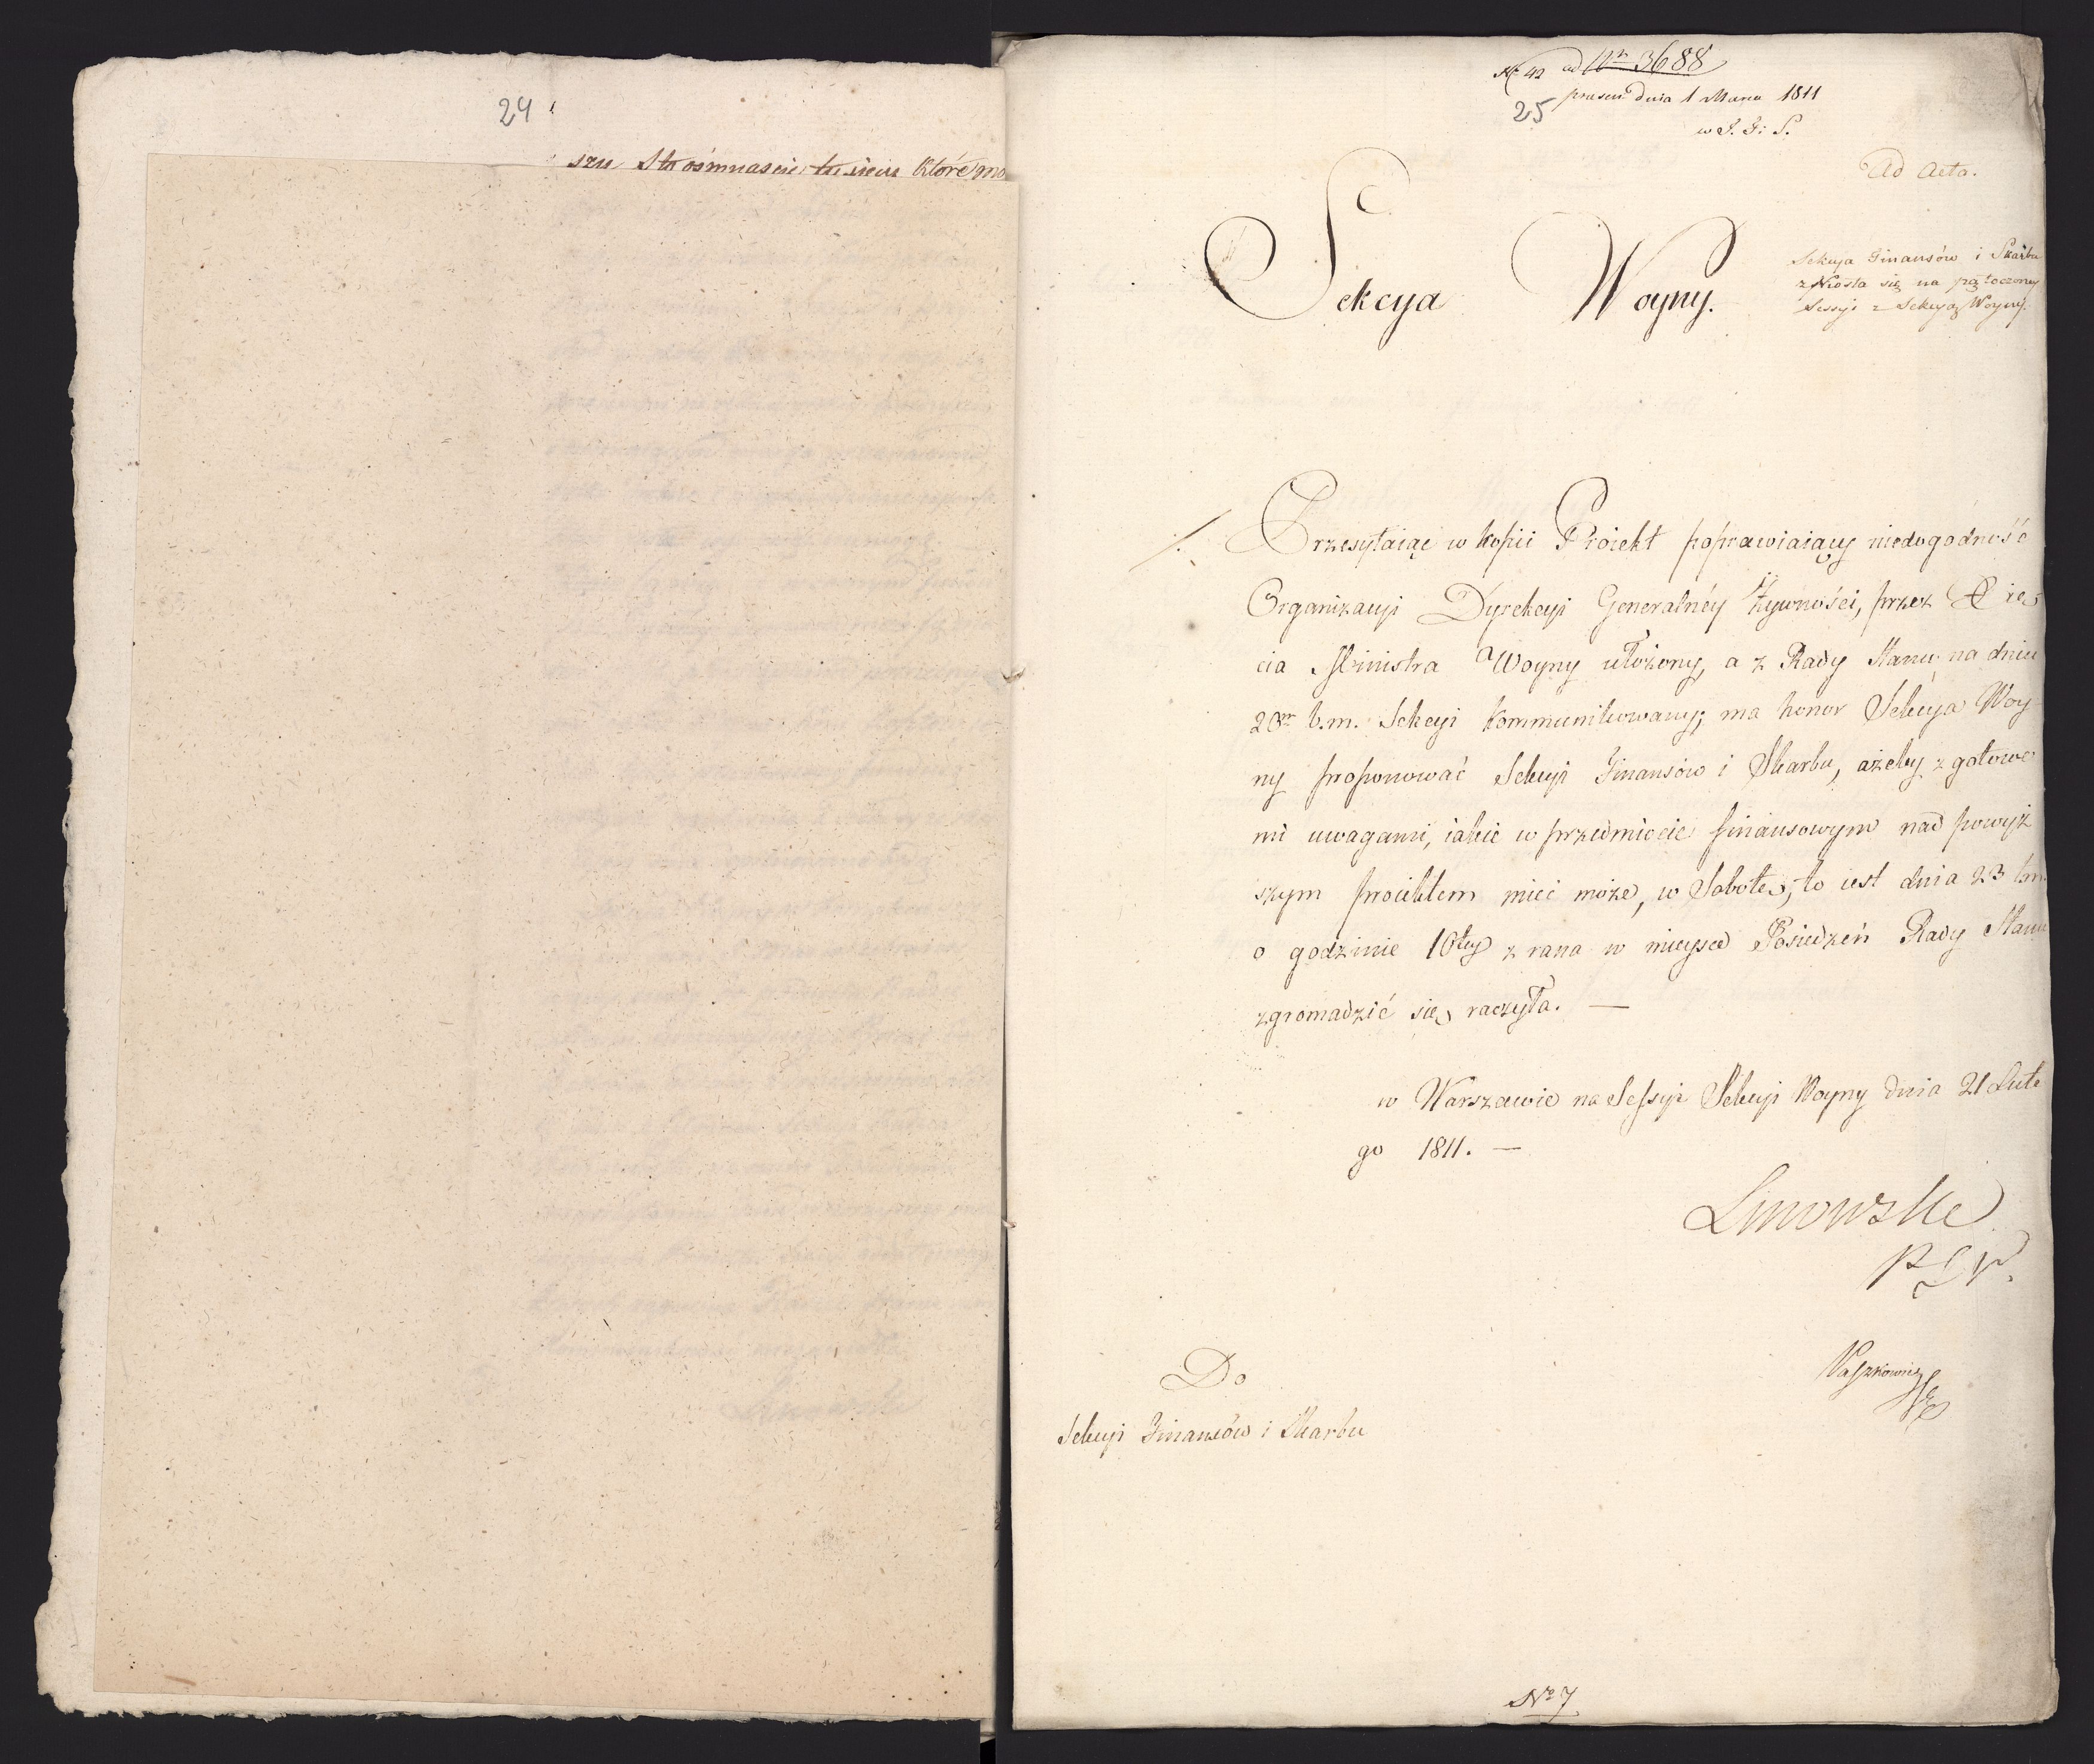 24
szu Sto ośmnaście tysięcy które mo
Nr 42 ad Nr 3688
25
praesen dnia 1 Marca 1811
w S. F: S.
Ad Acta.
Sekcya Woyny.
Sekcya Finansów i Skarbu
zniosła się na połączoney
Sessyi z Sekcyą Woyny.
Przesyłaiąc w kopii Proiekt poprawiaiący niedogodność
Organizacyi Dyrekcyi Generalnéy Żywności, przez Xię
cia Ministra Woyny ułożony, a z Rady Stanu na dniu
20m b.m. Sekcyi kommunikowany; ma honor Sekcya Woy
ny proponować Sekcyi Finansów i Skarbu, ażeby z gotowe
mi uwagami, iakie w przedmiocie finansowym nad powyż
szym proiektem mieć może, w Sobotę, to iest dnia 23 b.m.
o godzinie 10tey z rana w mieysce Posiedzeń Rady Stanu
zgromadzić się raczyła. —
w Warszawie na Sessyi Sekcyi Woyny dnia 21 Lute
go 1811. —
Linowski
P S W.
Waszkowicz
Do
Sekcyi Finansów i Skarbu
No 7